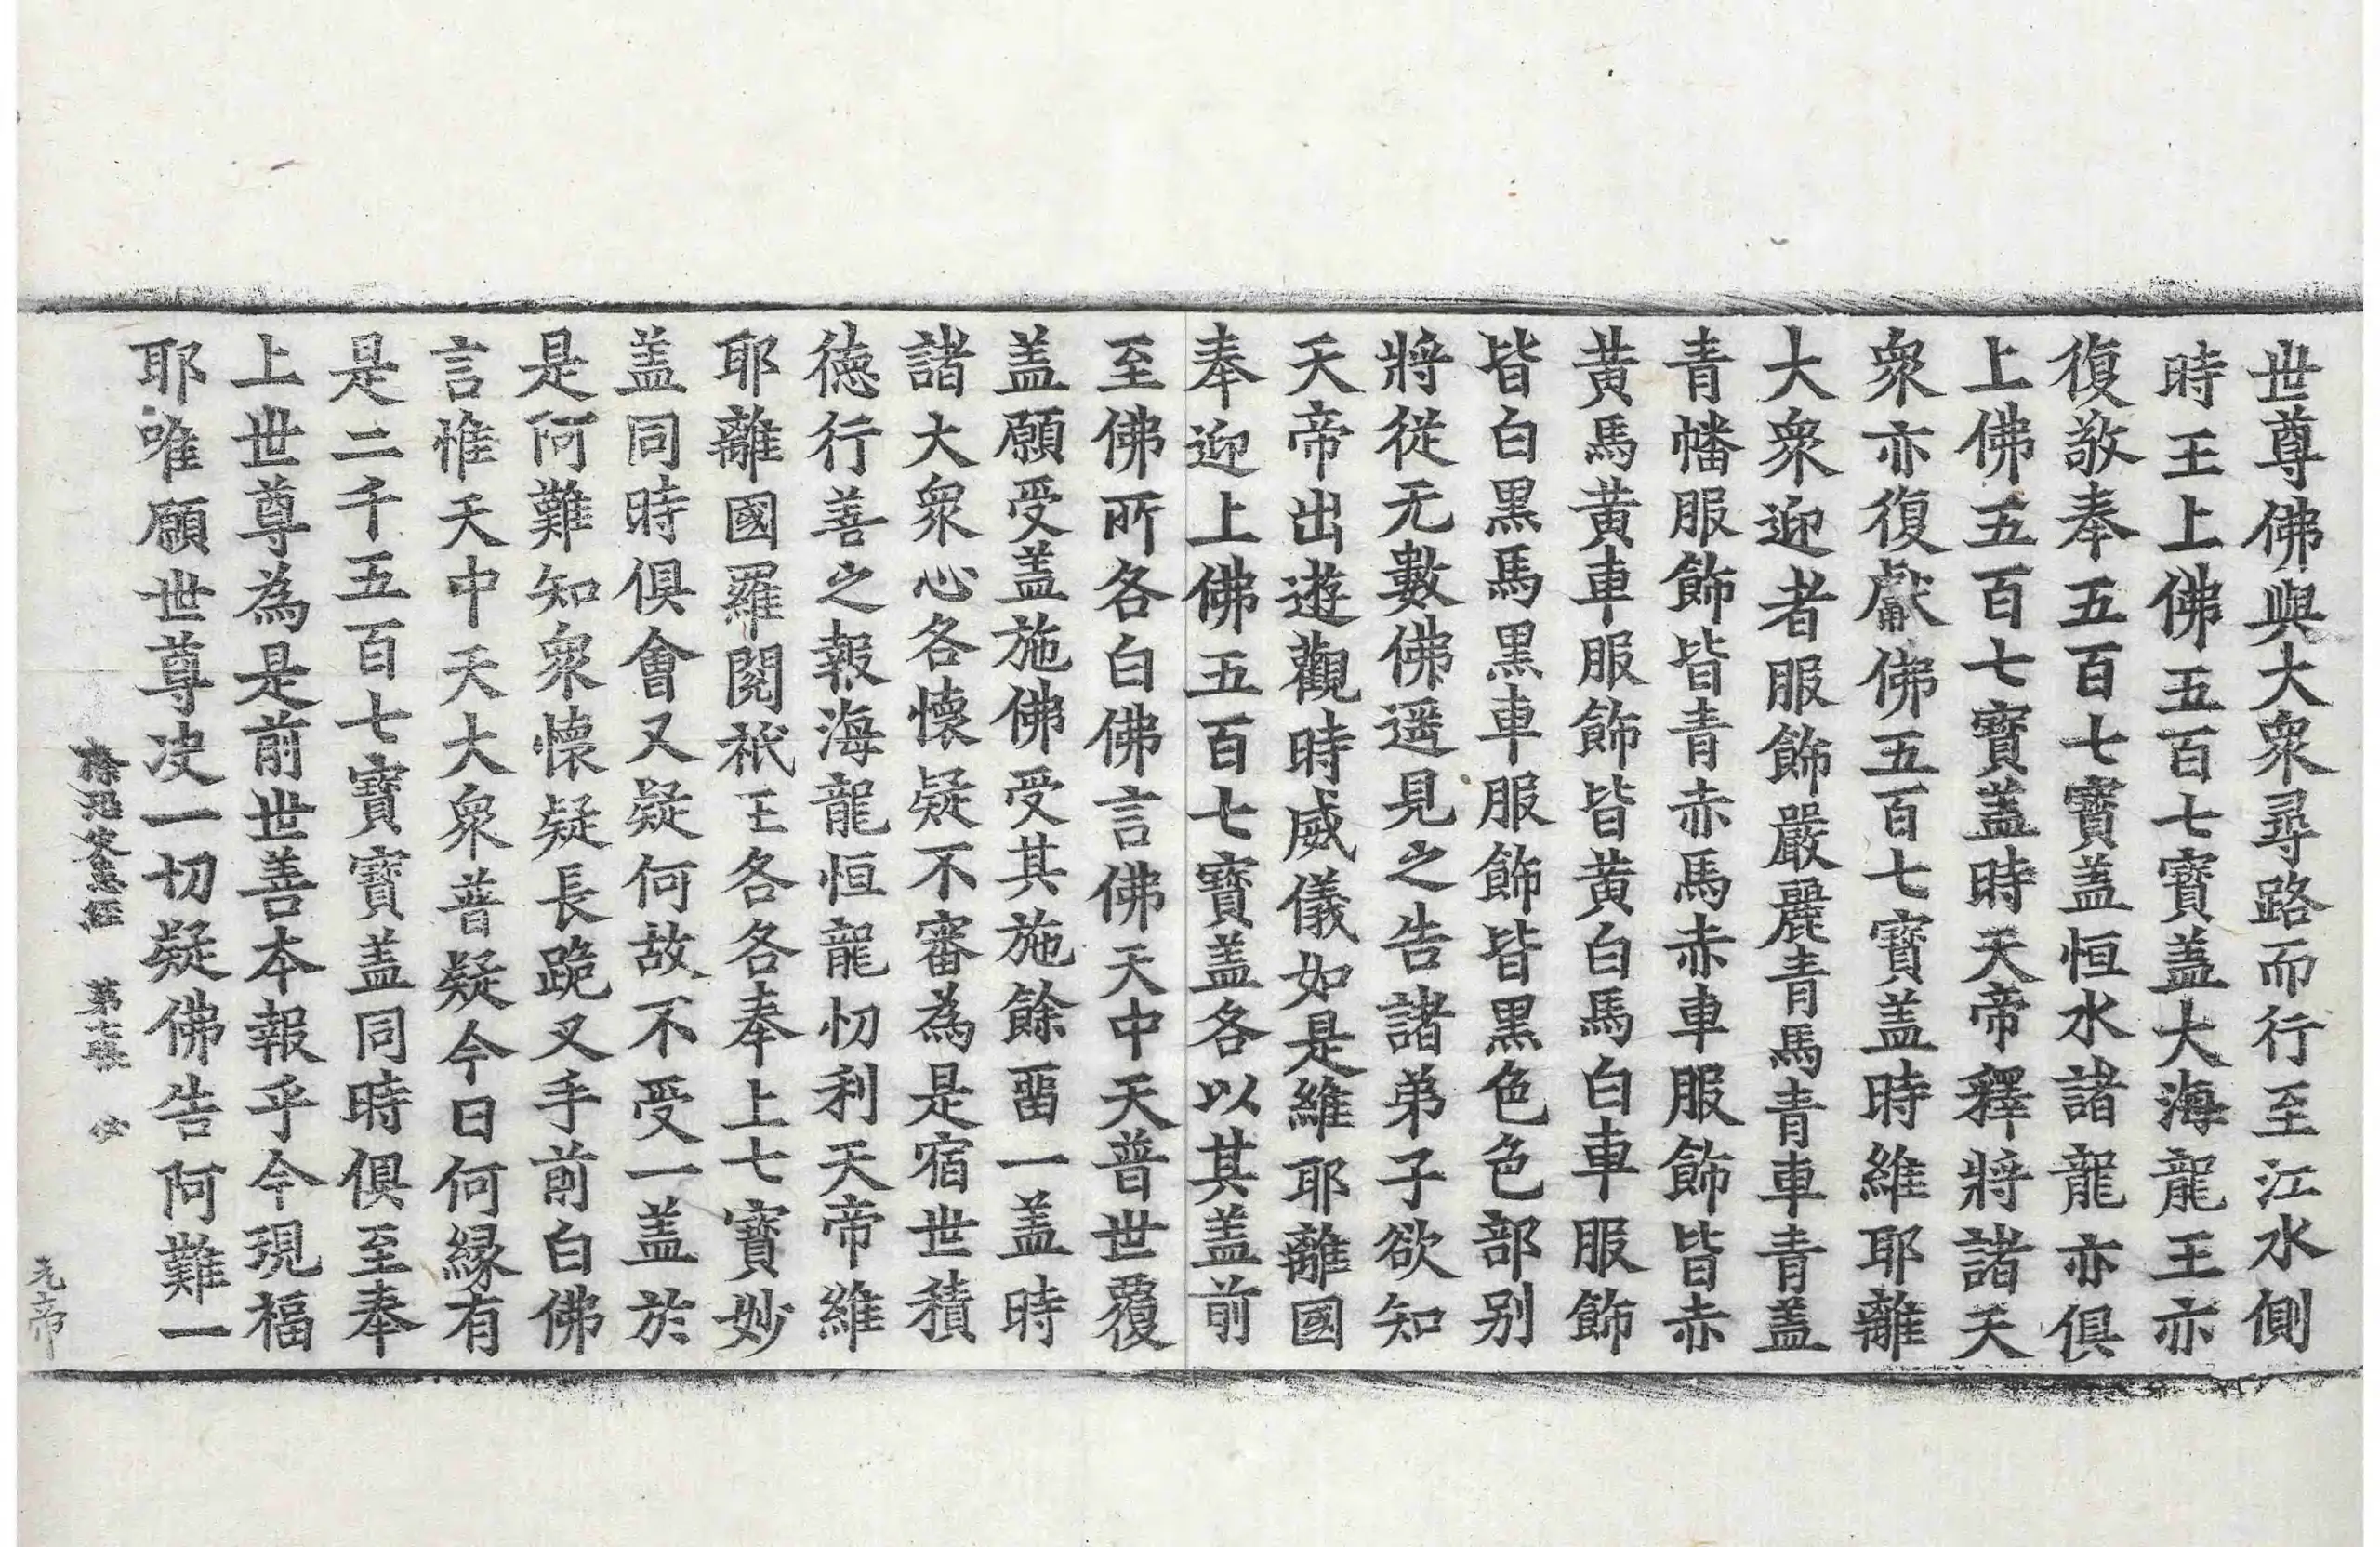 世尊佛與大衆尋路而行至江水側
時王上佛五百七寶盖大海龍王亦
復敬奉五百七寶盖恒水諸龍亦俱
上佛五百七寶盖時天帝釋將諸天
衆亦復獻佛五百七寶盖時維耶離
大衆迎者服飾嚴麗青馬青車青盖
青幡服飾皆青赤馬赤車服飾皆赤
黄馬黄車服飾皆黄白馬白車服飾
皆白黑馬黑車服飾皆黑色色部别
將從无數佛遥見之告諸弟子欲知
天帝出遊觀時威儀如是維耶離國
奉迎上佛五百七寶盖各以其盖前
至佛所各白佛言佛天中天普世覆
盖願受盖施佛受其施餘畱一盖時
諸大衆心各懷疑不審為是宿世積
徳行善之報海龍恒龍忉利天帝維
耶離國羅閱祇王各各奉上七寶妙
盖同時俱會又疑何故不受一盖於
是阿難知衆懷疑長跪叉手前白佛
言惟天中天大衆普疑今日何縁有
是二千五百七寶寶盖同時俱至奉
上世尊為是前世善本報乎今現福
耶唯願世尊决一切疑佛告阿難一
除恐灾患經 第七張 必